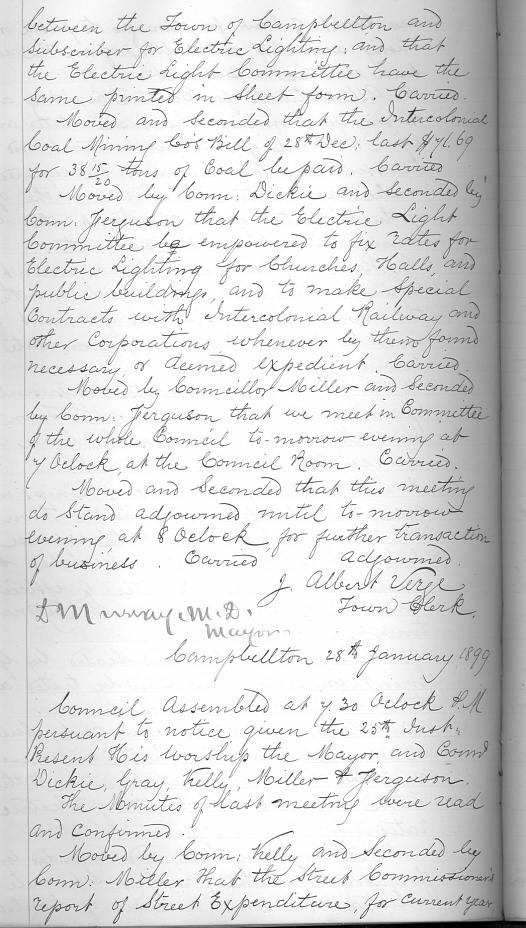 between the Town of Campbellton and
Subscriber for Electric Lighting; and that
the Electric Light Committee have the
same printed in Sheet form. Carried.
Moved and Seconded that the Intercolonial
Coal Mining Co's Bill of 28th Dec: last $71.69
for 38 15/20 tons of Coal be paid. Carried
Moved by Coun: Dickie and Seconded by
Coun: Ferguson that the Electric Light
Committee be empowered to fix rates for
Electric Lighting for Churches, Halls, and
public buildings, and to make Special
Contracts with Intercolonial Railway and
other Corporations whenever by them found
necessary or deemed expedient. Carried.
Moved by Councillor Miller and Seconded
by Coun: Ferguson that we meet in Committee
of the whole Council to-morrow evening at
7 Oclock, at the Council Room. Carried.
Moved and Seconded that this meeting
do Stand adjourned until to-morrow
evening at 8 Oclock, for further transaction
of business. Carried adjourned.
J. Albert Verge
Town Clerk.
D Murray. M.D.
Mayor
Campbellton 28th January 1899
Council Assembled at 7.30 Oclock P.M
persuant to notice given the 25th Inst.
Present His worship the Mayor, and Coun
Dickie, Gray, Kelly, Miller & Ferguson.
The Minutes of last meeting were read
and confirmed.
Moved by Coun: Kelly and Seconded by
Coun: Miller that the Street Commissioner's
report of Street Expenditure, for current year